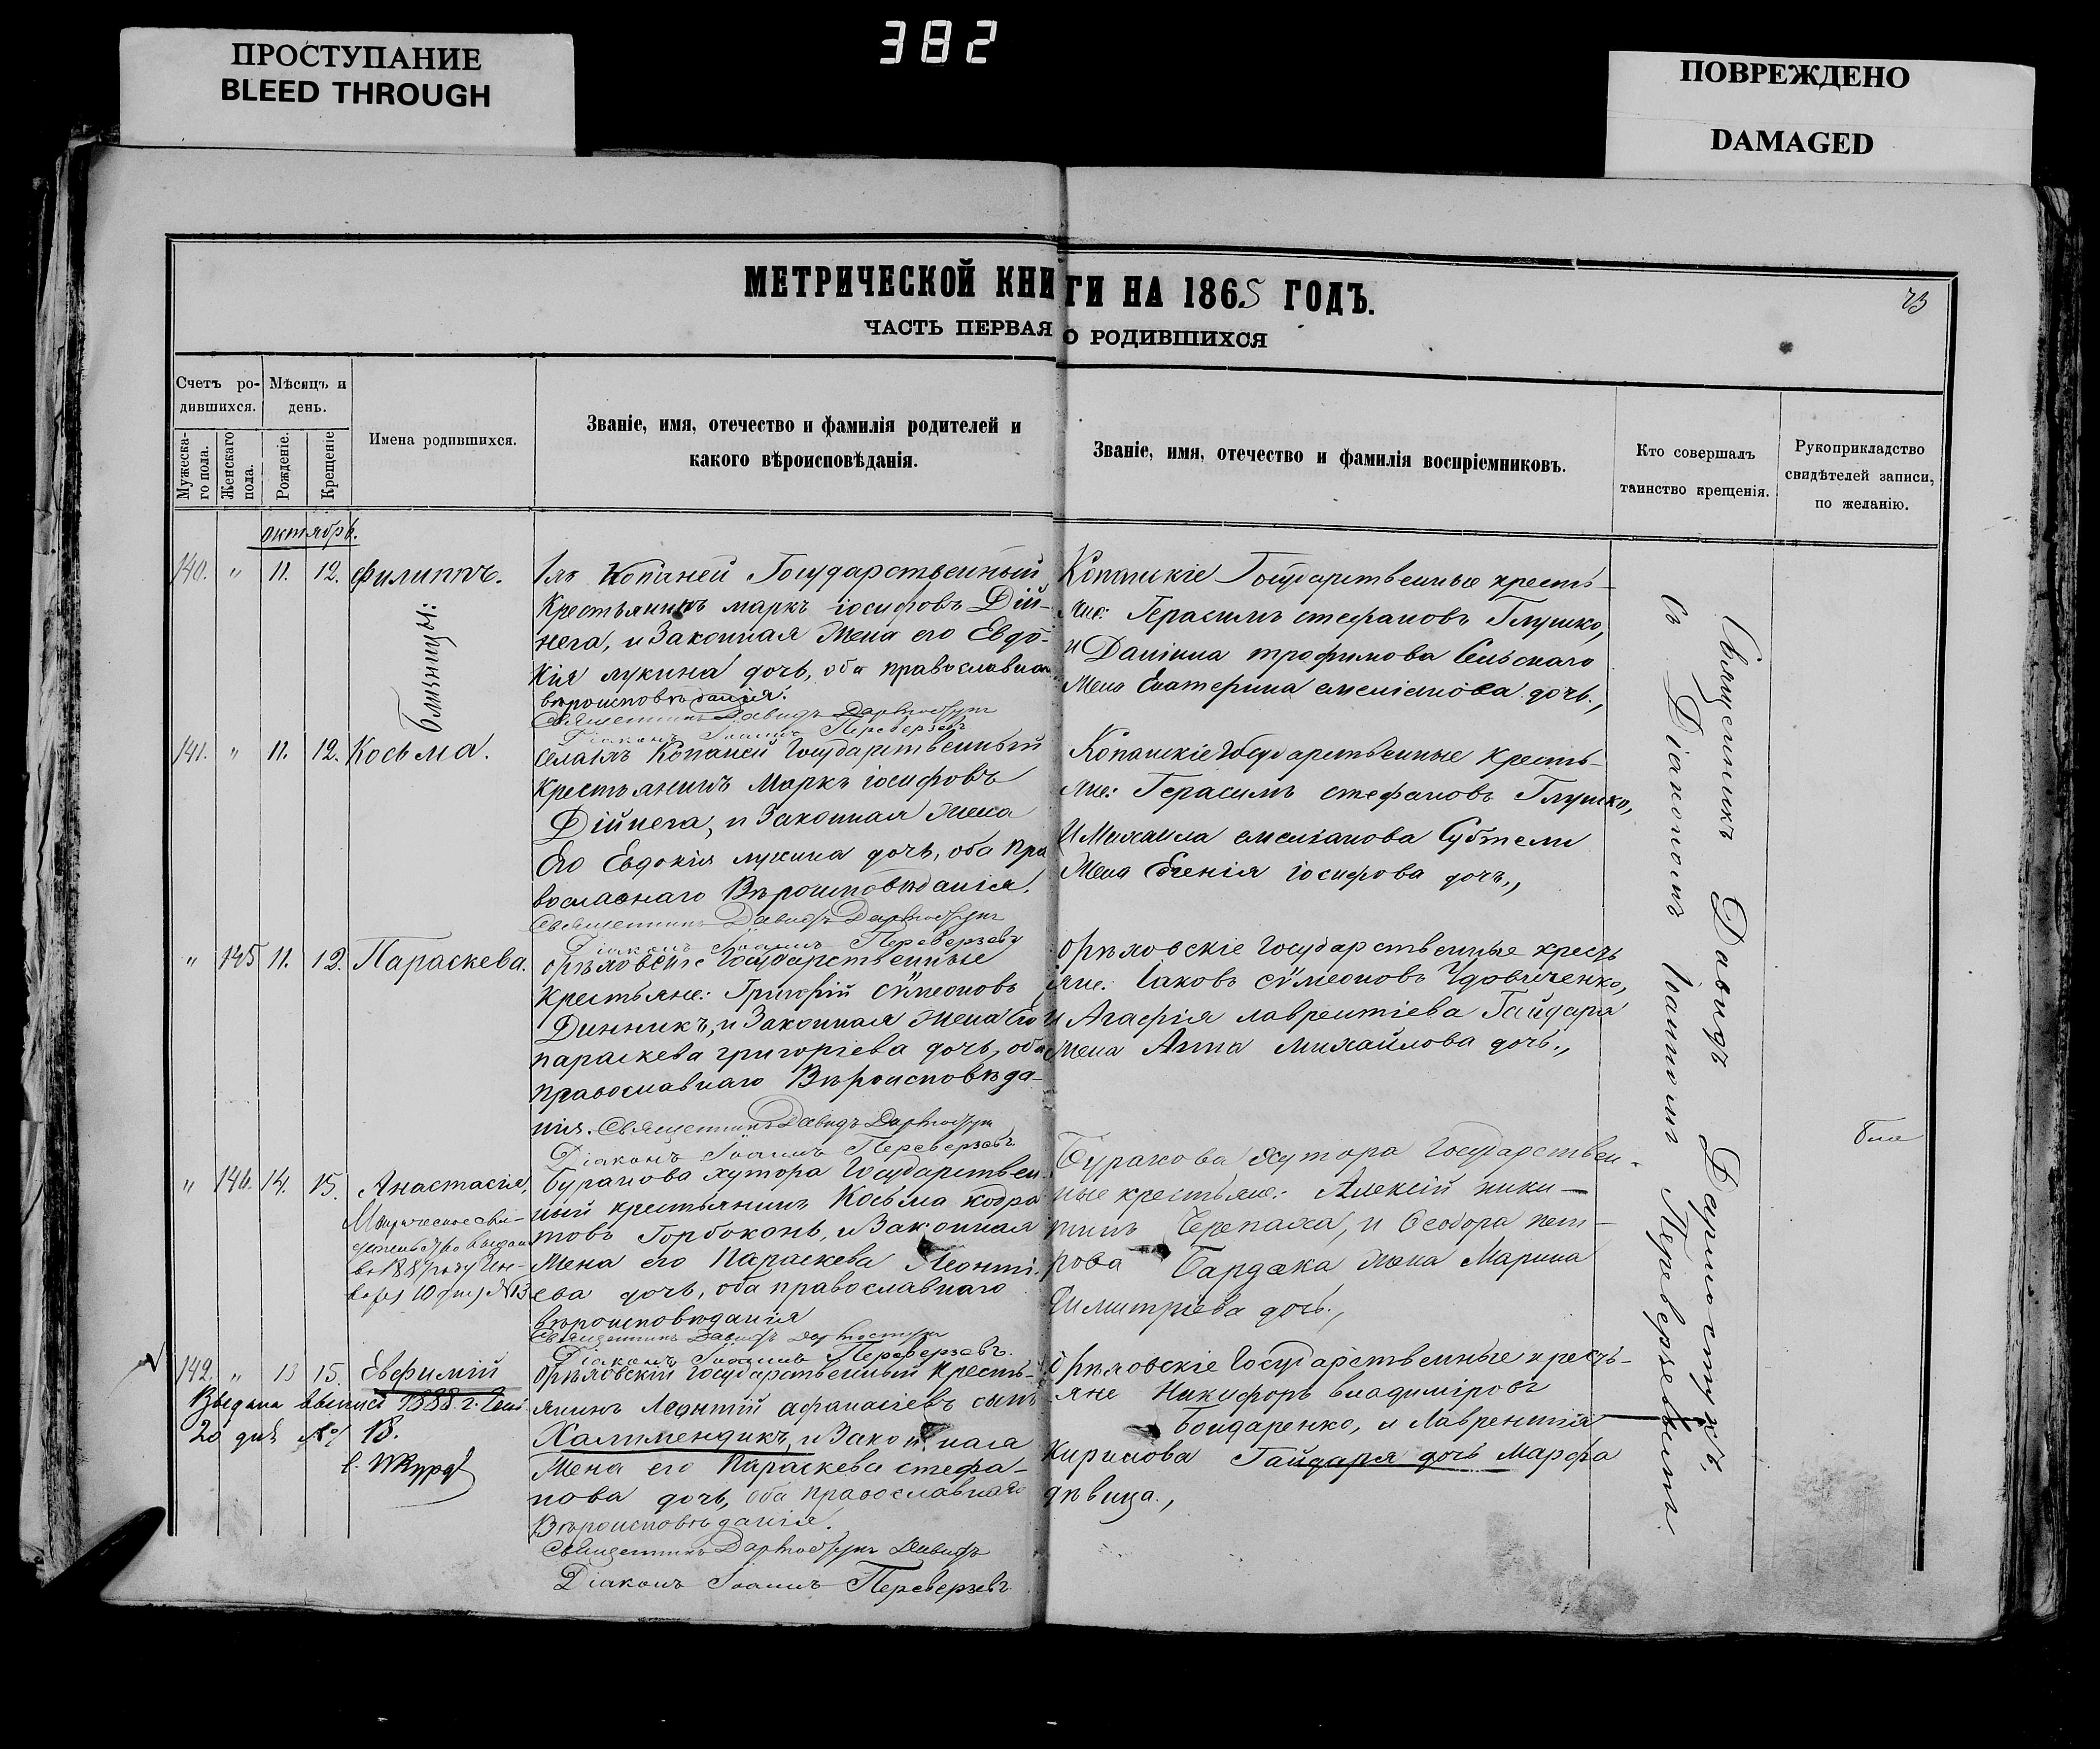 382
ПРОСТУПАНИЕ
BLEED THROUGH
ПОВРЕЖДЕНО
DAMAGED
МЕТРИЧЕСКОЙ КНИГИ НА 1865 ГОДЪ.
ЧАСТЬ ПЕРВАЯ О РОДИВШИХСЯ
Счетъ ро-
дившихся.
Мужеска-
го пола.
Женскаго
пола.
Мѣсяцъ и
день.
Рожденіе.
Крещеніе
Имена родившихся.
Званіе, имя, отечество и фамилія родителей и
какого вѣроисповѣданія.
Званіе, имя, отечество и фамилія воспріемниковъ.
Кто совершалъ
таинство крещенія.
Рукоприкладство
свидѣтелей записи,
по желанію.
октябрь.
140. " 11. 12. Филиппъ.
близнецы:
Копаней Государственный
Крестьянинъ маркъ іосифовъ Дій-
нега, и Законная Жена его Евдо-
кія лукина дочь, оба православнаго
вѣроисповѣданія.
Священникъ Давидъ
Діаконъ Іоаннъ Переверзевъ
Копанскіе Государственные кресть-
яне: Герасимъ стефановъ Глушко,
и Даніила трофимова Сельскаго
Жена Екатерина емеліанова дочь.,
141. " 11. 12. Косьма.
Копаней Государственный
Крестьянинъ Маркъ іосифовъ
Дійнега, и Законная Жена
Его Евдокія лукина дочь, оба пра
вославнаго Вѣроисповѣданія.
Священникъ Давидъ
Діаконъ Іоаннъ Переверзевъ
Копанскіе Государственные кресть-
яне: Герасимъ стефановъ Глушко,
И Михаила емеліанова Субтели
Жена Евгенія іосифова дочь.,
" 145 11. 12. Параскева.
орѣховскіе Государственные
крестьяне: Григорій сѵмеоновъ
Динникъ, и Законная Жена Его
параскева григоріева дочь, оба
православнаго Вѣроисповѣда-
нія. Священникъ Давидъ
Діаконъ Іоаннъ Переверзевъ
орѣховскіе Государственные кресть
яне: Іаковъ сѵмеоновъ Удовиченко,
и Агафія лаврентіева Гайдаря
жена Анна михайлова дочь.,
" 146. 14. 15. Анастасія,
Бурахова хутора Государствен-
ный крестьянинъ Косьма кодра
товъ Горбоконь, и Законная
Жена его Параскева Леонті-
ева дочь, оба православнаго
вѣроисповѣданія
Священникъ Давидъ
Діаконъ Іоаннъ Переверзевъ.
Бурахова Хутора Государствен-
ные крестьяне: Алексій ники-
тинъ Черепаха, и Ѳеодора пет-
рова Бардака Жена Марина
Димитріева дочь.,
142. " 13 15. Евфимій
Выдана выпись 1888 г.
20 дня № 18.
орѣховскій Государственный кресть-
янинъ Леонтій афанасіевъ сынъ
Халимендикъ, и Законная
Жена его Параскева стефа-
нова дочь, оба православнаго
Вѣроисповѣданія.
Священникъ Давидъ
Діаконъ Іоаннъ Переверзевъ
орѣховскіе Государственные кресть-
яне Никифоръ владиміровъ
бондаренко, и Лаврентія
кирилова Гайдаря дочь Марфа
дѣвица.,
Священникъ Давидъ
съ Діакономъ Іоанномъ Переверзевымъ.